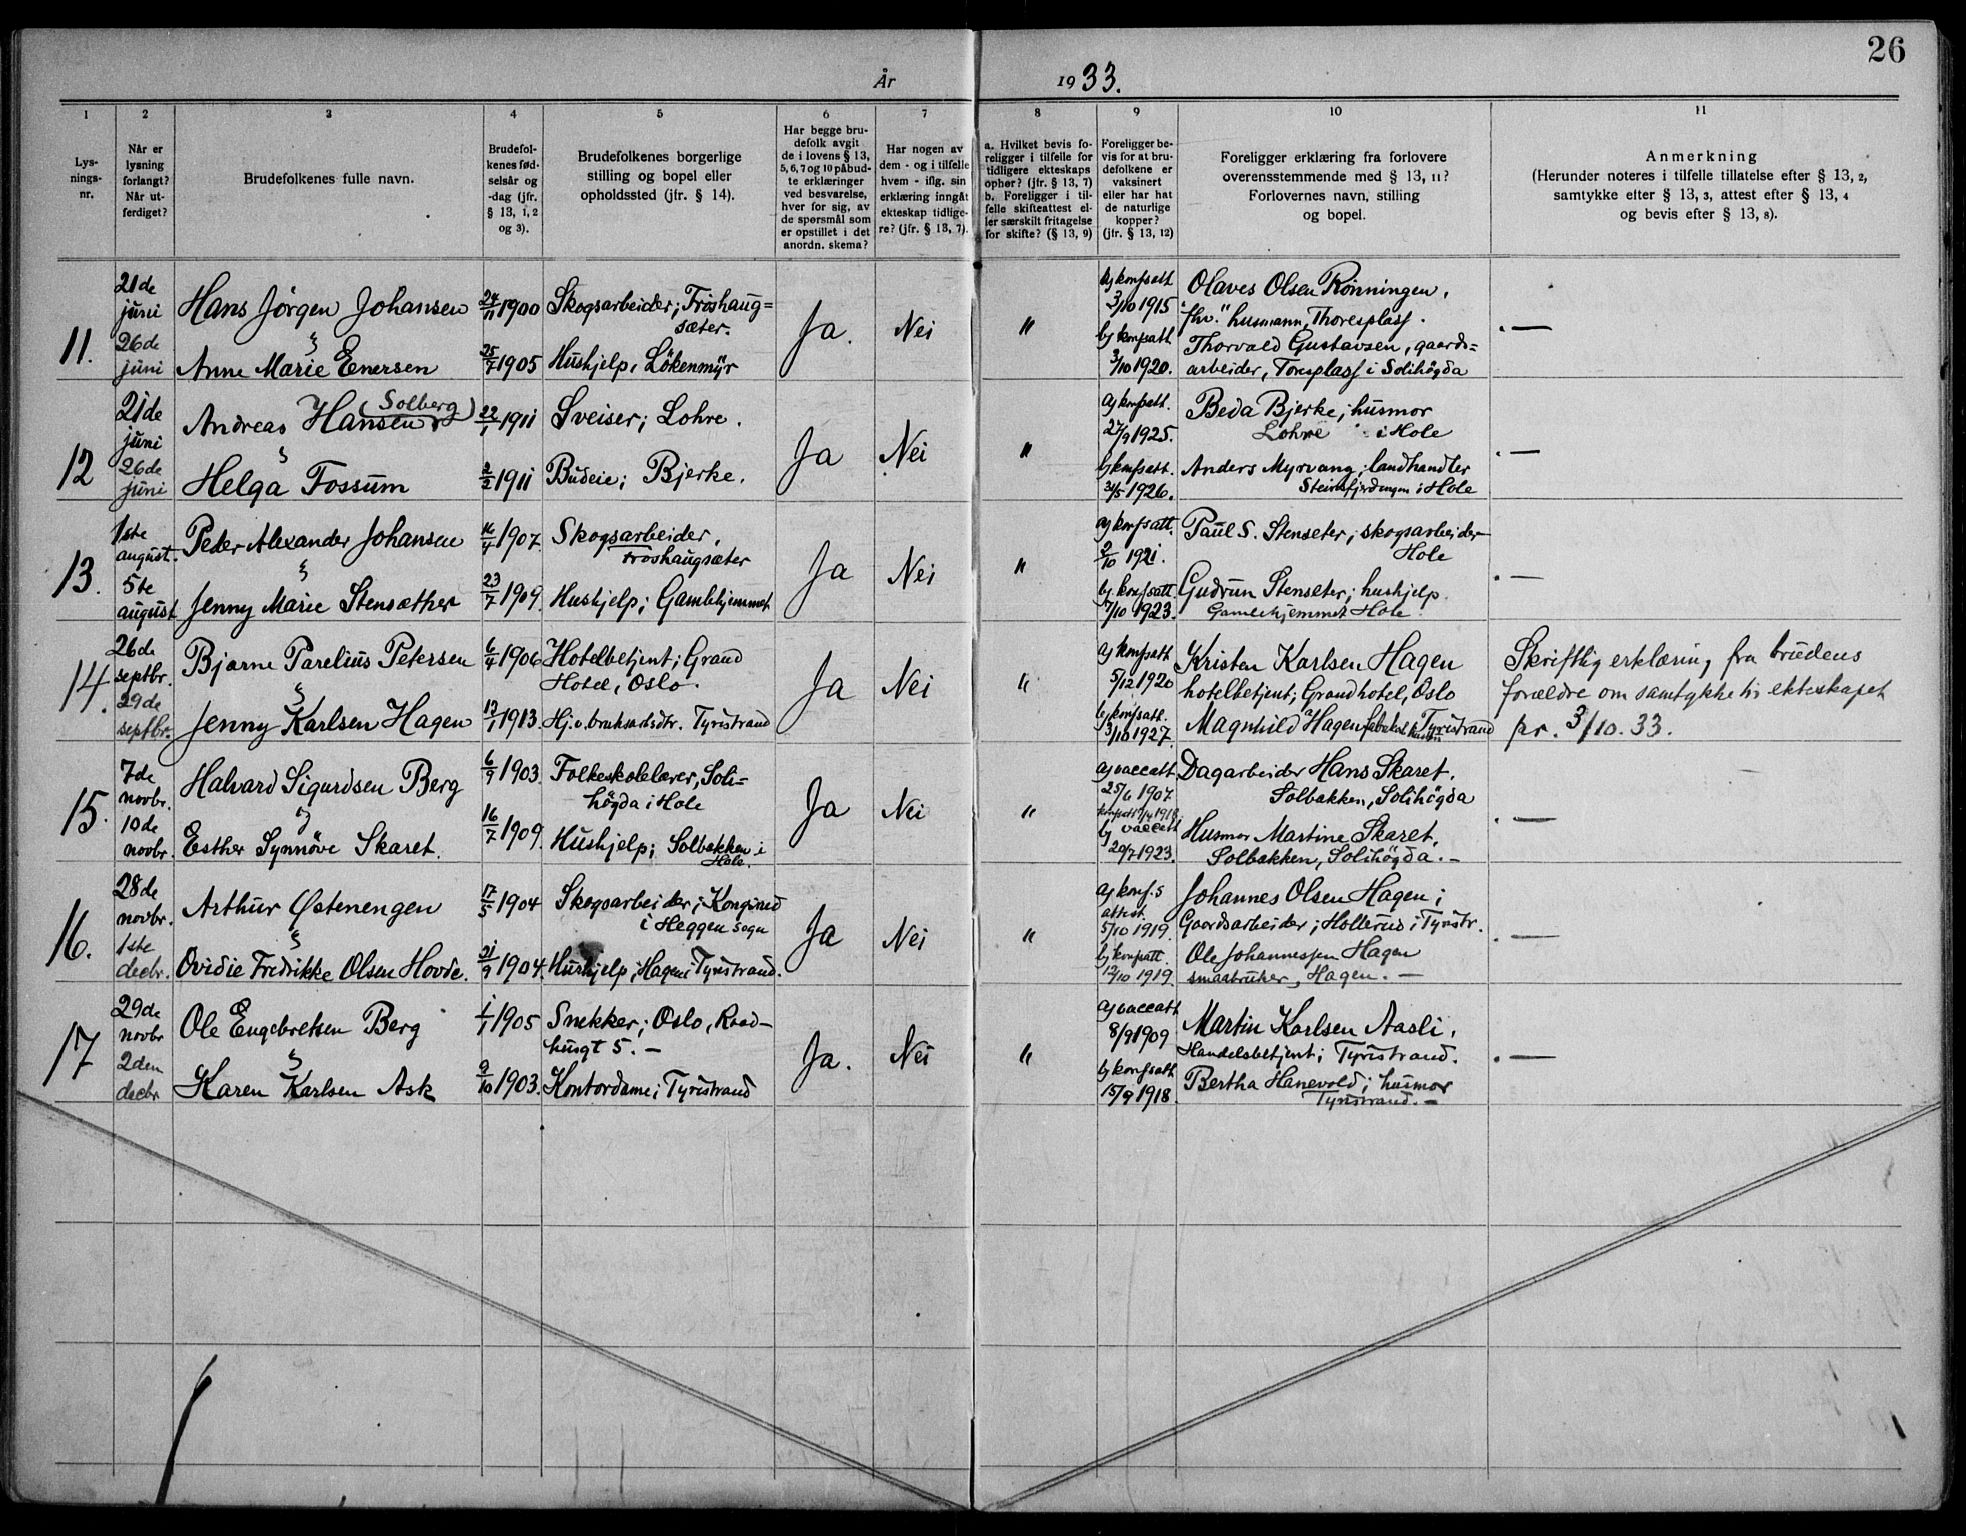 26
År 1933.
1 2 3 4 5 6 7 8 9 10 11
Lys-
nings-
nr.
Når er
lysning
forlangt?
Når ut-
ferdiget?
Brudefolkenes fulle navn.
Brudefol-
kenes fød-
selsår og
-dag (jfr.
§ 13, 1, 2
og 3).
Brudefolkenes borgerlige
stilling og bopel eller
opholdssted (jfr. § 14).
Har begge bru-
defolk avgit
de i lovens § 13,
5, 6, 7 og 10 påbud-
te erklæringer
ved besvarelse,
hver for sig, av
de spørsmål som
er opstillet i det
anordn. skema?
Har nogen av
dem - og i tilfelle
hvem - iflg. sin
erklæring inngåt
ekteskap tidlige-
re? (jfr. § 13, 7).
a. Hvilket bevis fo-
religger i tilfelle for
tidligere ekteskaps
ophør? (jfr. § 13, 7)
b. Foreligger i til-
felle skifteattest el-
ler særskilt fritagelse
for skifte? (§ 13, 9)
Foreligger be-
vis for at bru-
defolkene er
vaksinert
eller har hat
de naturlige
kopper?
(jfr. § 13, 12)
Foreligger erklæring fra forlovere
overensstemmende med § 13, 11?
Forlovernes navn, stilling
og bopel.
Anmerkning
(Herunder noteres i tilfelle tillatelse efter § 13, 2,
samtykke efter § 13, 3, attest efter § 13, 4
og bevis efter § 13, 8).
11.
21de
juni
26de
juni
Hans Jörgen Johansen
Anne Marie Enersen
24/11 1900
25/7 1905
Skogsarbeider; Fröshaug=
sæter.
Hushjelp, Lökenmyr
Ja.
Nei
"
a) konf.att
3/10 1915
b) konf.att
3/10 1920.
Olaves Olsen Rönningen,
"fhv." husmann, Thoresplass.
Thorvald Gustavsen, gaards=
arbeider, Toresplass i Solihögda
. —
12
21de
juni
26de
juni
(Solberg)
Andreas Hansen
Helga Fossum
22/1 1911
2/2 1911
Sveiser; Lohre.
Budeie; Bjerke.
Ja
Nei
"
a) konf.att.
27/9 1925.
b) konf.att.
3/5 1926.
Beda Bjerke; husmor
Lohre i Hole
Anders Myrvang; landhandler
Steinsfjerdingen i Hole
. —
13.
1ste
august.
5te
august
Peder Alexander Johansen
Jenny Marie Stensæther
16/4 1907.
23/7 1909.
Skogsarbeider,
Froshaugsæter
Hushjelp; Gamlehjemmet
Ja
Nei
"
a) konf.att.
2/10 1921.
b) konf.att.
7/10 1923.
Paul S. Stenseter; skogsarbeider
Hole
Gudrun Stenseter; hushjelp.
Gamlehjemmet Hole.
. —
14.
26de
septbr.
29de
septbr.
Bjarne Parelius Petersen
Jenny Karlsen Hagen
6/4 1906
13/1 1913.
Hotelbetjent; Grand
Hotel, Oslo.
Hj.v. bruksarbdtr. Tyristrand
Ja
Nei
"
a) konf.att
5/12 1920
b) konf.att.
3/10 1927.
Kristen Karlsen Hagen
hotelbetjent; Grand hotel, Oslo
Magnhild Hagen Tyristrand
Skriftlig erklæring fra brudens
forældre om samtykke til ekteskapet
pr. 3/10. 33.
15.
7de
novbr.
10de
novbr.
Halvard Sigurdsen Berg
Esther Synnöve Skaret.
6/9 1903.
16/7 1909.
Folkeskolelærer, Soli=
högda i Hole
Hushjelp; Solbakken i
Hole.
Ja
Nei
"
a) vaccatt
25/6 1907
b) vaccatt
20/7 1923.
Dagarbeider Hans Skaret.
Solbakken, Solihögda
Husmor Martine Skaret.
Solbakken, Solihögda. —
. —
16.
28de
novbr.
1ste
decbr.
Arthur Østenengen
Ovidie Fredrikke Olsen Hovde.
17/5 1904
21/9 1904.
Skogsarbeider; Kongsrud
i Heggen sogn
Hushjelp; Hagen i Tyristrand.
Ja
Nei
"
a) konf.s
attest
5/10 1919.
b) konf.att.
12/10 1919.
Johannes Olsen Hagen;
Gaardsarbeider; Hollerud i Tyristr.
Ole Johannessen Hagen
smaabruker, Hagen. —
. —
17
29de
novbr
2den
decbr
Ole Engebretsen Berg
Karen Karlsen Ask
1/1 1905
9/10 1903.
Snekker; Oslo, Raad-
husgt 5. —
Kontordame; Tyristrand
Ja.
Nei
"
a) vaccatt
8/9 1909
b) konf.att
15/9 1918.
Martin Karlsen Aasli,
Handelsbetjent; Tyristrand.
Bertha Hanevold; husmor
Tyristrand. —
. —